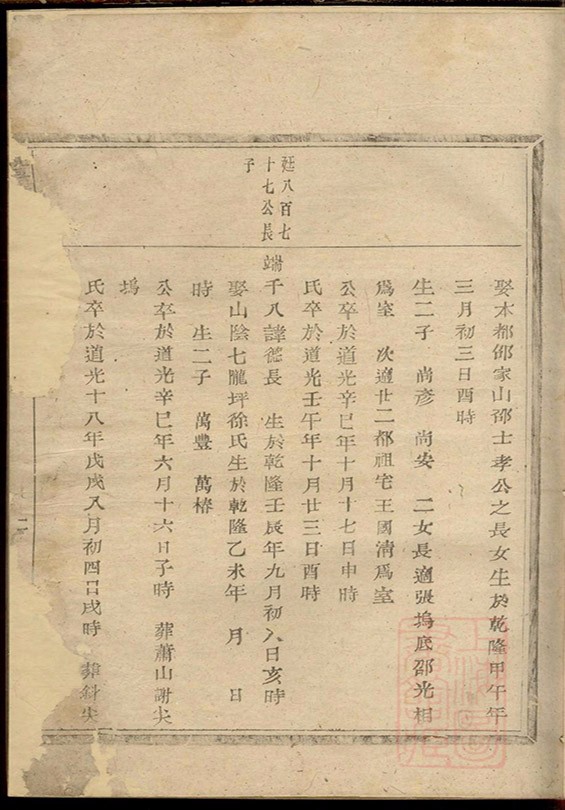 娶本都邵家山邵士孝公之長女生於乾隆甲午年
三月初三日酉時
生二子 尚彥 尚安 二女長適張塢底邵光相
爲室 次適廿二都祖宅王國清爲室
公卒於道光辛巳年十月十七日申時
氏卒於道光壬午年十月廿三日酉時
廷八百七
十七公長
子
端千八諱德長 生於乾隆壬辰年九月初八日亥時
娶山陰七隴坪徐氏生於乾隆乙未年 月 日
時 生二子 萬豐 萬椿
公卒於道光辛巳年六月十六日子時 葬蕭山謝尖
塢
氏卒於道光十八年戊戌八月初四日戌時 葬斜尖
二